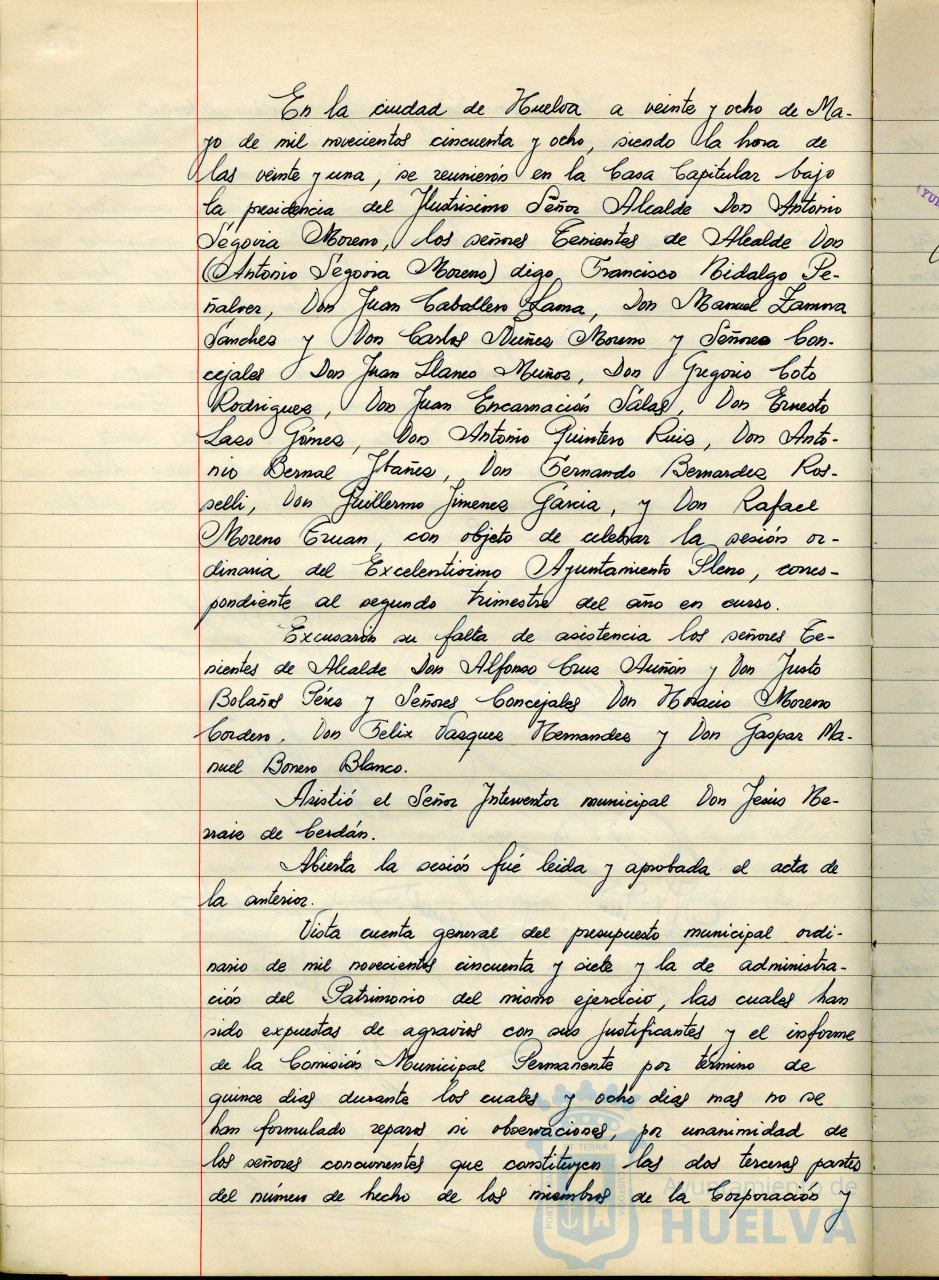 En la ciudad de Huelva a veinte y ocho de Ma-
yo de mil novecientos cincuenta y ocho, siendo la hora de
las veinte y una, se reunieron en la Casa Capitular bajo
la presidencia del Ilustrisimo Señor Alcalde Don Antonio
Segovia Moreno, los señores Tenientes de Alcalde Don
(Antonio Segovia Moreno) digo, Francisco Hidalgo Pe-
ñalver, Don Juan Caballero Lama, Don Manuel Zamora
Sanchez y Don Carlos Nuñez Moreno y Señores Con-
cejales Don Juan Llanes Muñoz, Don Gregorio Coto
Rodriguez, Don Juan Encarnación Salas, Don Ernesto
Lazo Gómez, Don Antonio Quintero Ruiz, Don Anto-
nio Bernal Ibañez, Don Fernando Bernardez Ros-
selli, Don Guillermo Jimenez Garcia, y Don Rafael
Moreno, con objeto de celebrar la sesión or-
dinaria del Excelentisimo Ayuntamiento Pleno, corres-
pondiente al segundo trimestre del año en curso.
Excusaron su falta de asistencia los señores Te-
nientes de Alcalde Don Alfonso Cruz Auñón y Don Justo
Bolaños Pérez y Señores Concejales Don Horacio Moreno
Cordero, Don Felix Vasquez Hernandez y Don Gaspar Ma-
nuel Bonero Blanco.
Asistió el Señor Interventor municipal Don Jesús
de Cerdán.
Abierta la sesión fué leida y aprobada el acta de
la anterior.
Vista cuenta general del presupuesto municipal ordi-
nario de mil novecientos cincuenta y siete y la de administra-
ción del Patrimonio del mismo ejercicio, las cuales han
sido expuestas de agravios con sus justificantes y el informe
de la Comisión Municipal Permanente por término de
quince dias durante los cuales y ocho dias mas no se
han formulado reparos ni observaciones, por unanimidad de
los señores concurrentes que constituyen las dos terceras partes
del número de hecho de los miembros de la Corporación y
Ayuntamiento de
HUELVA